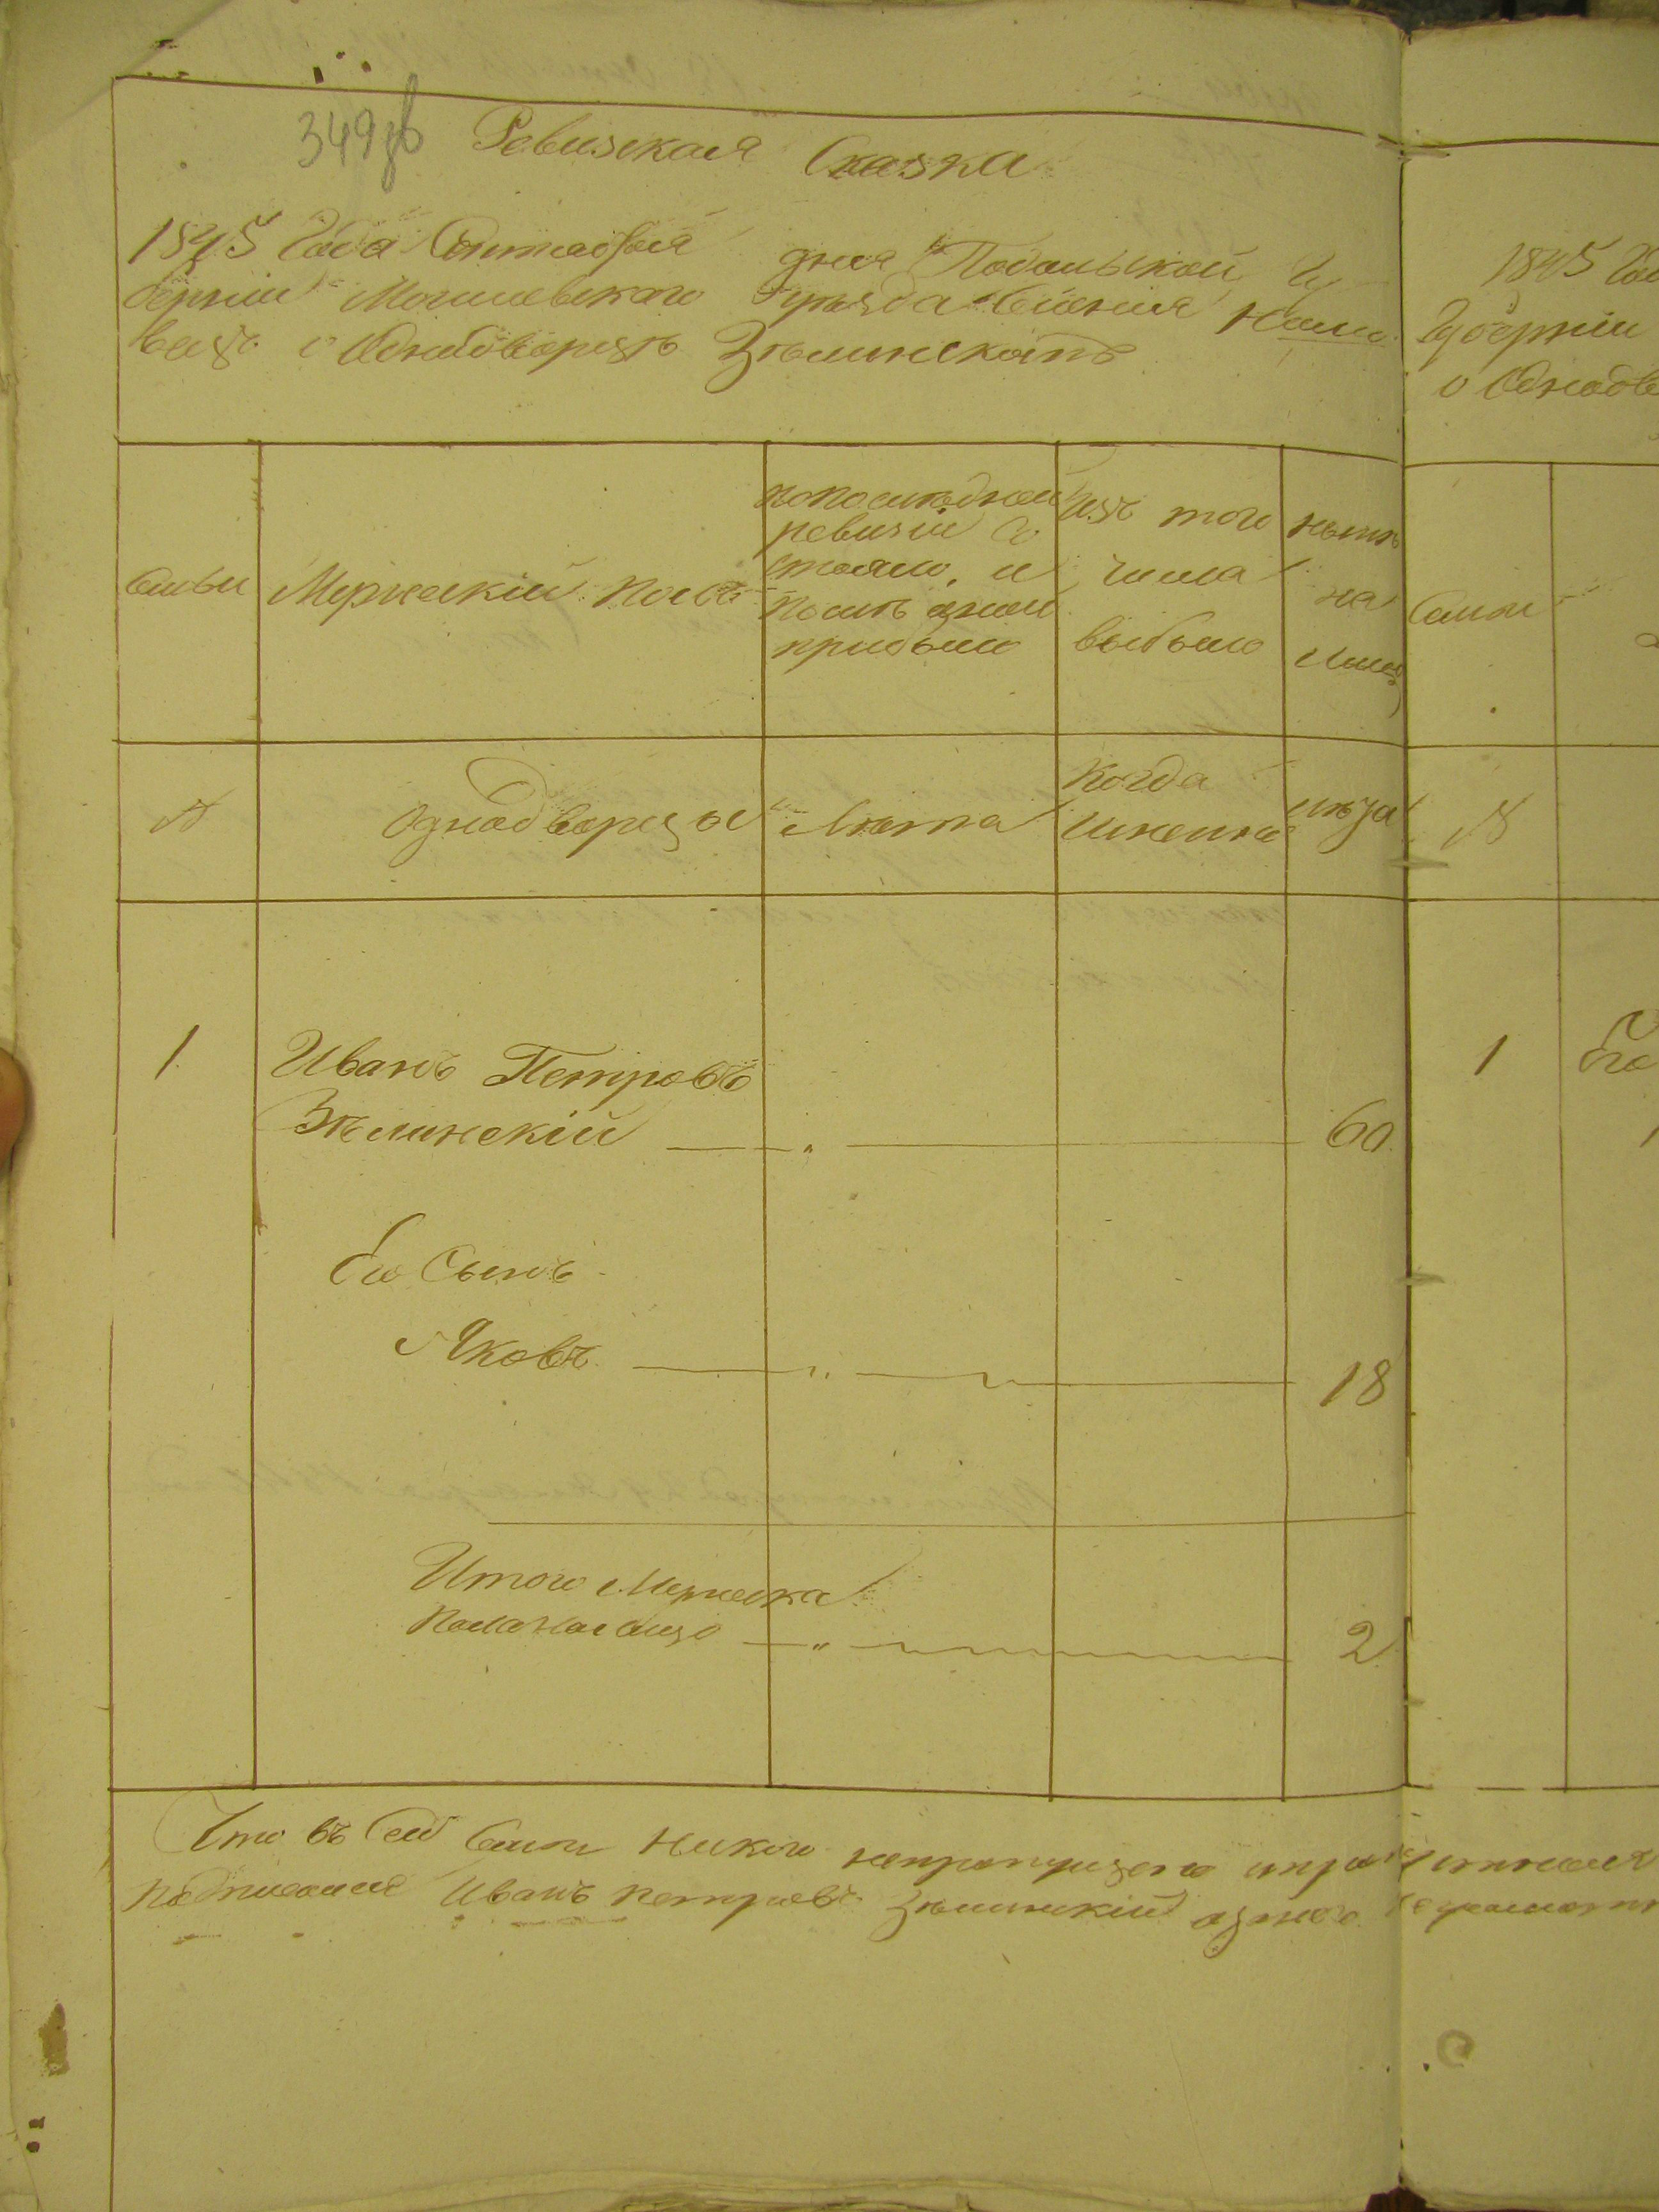 349 об
Ревизская Сказка
1845 Года Сентабря дня Подольской Гу
берніи Могилевского Уѣзда Селенія
о Однодворцѣ Зѣлинскомъ
Семьи
Мужескій полъ
по последней
ревизіи со
стояло, и
послѣ оной
прибыло
Изъ того
числа
выбыло
нынѣ
на
лицо
№
Однодворцы
Лѣта
Когда
Именно
лѣта
1
Иванъ Петровъ
Зѣлинскій
60
Его Сынъ
Яковъ
18
Итого Мужеска
пола на лицо
2
Что въ сей семьи никого непропущено
Иванъ Петровъ Зѣлинскій
1845 Год
Губерніи
о Однодв
Семьи
№
1